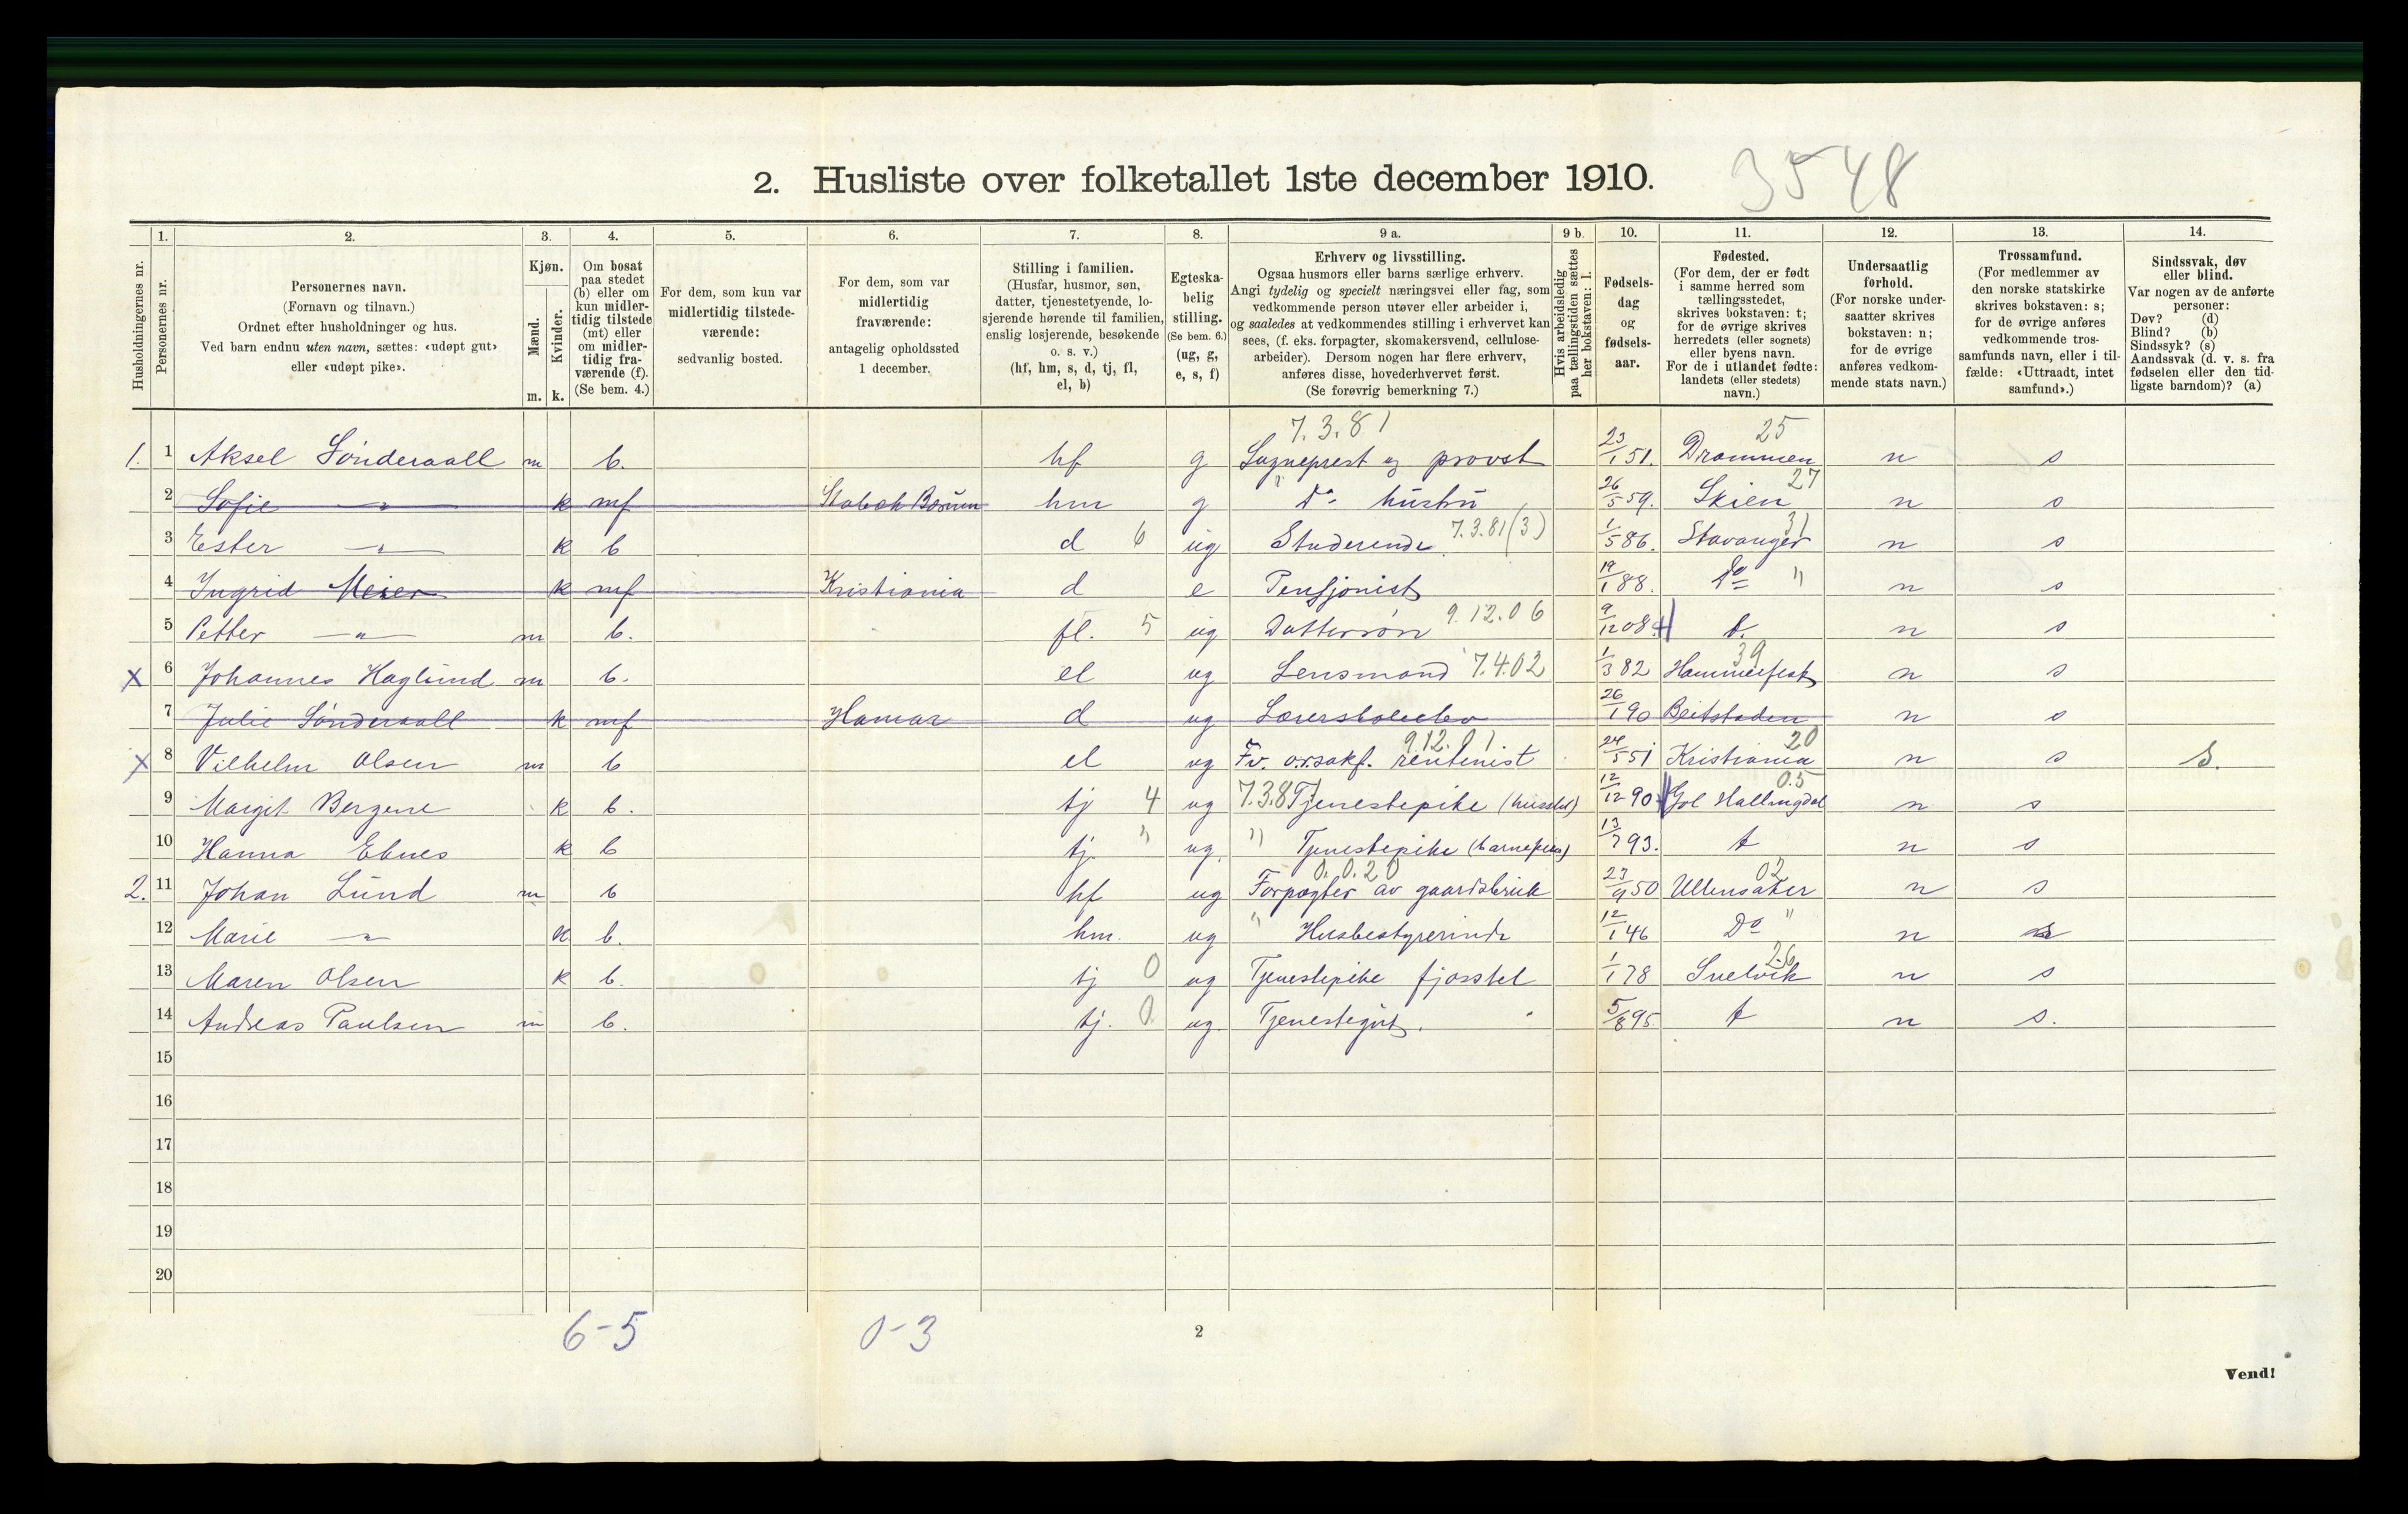 2. Husliste over folketallet 1ste december 1910. 3548
Husholdningernes nr. | 1. Personernes nr. | 2. Personernes navn. (Fornavn og tilnavn.) Ordnet efter husholdninger og hus. Ved barn endnu uten navn, sættes: «udøpt gut» eller «udøpt pike». | 3. Kjøn. Mænd. m. Kvinder. k. | 4. Om bosat paa stedet (b) eller om kun midlertidig tilstede (mt) eller om midlertidig fraværende (f). (Se bem. 4.) | 5. For dem, som kun var midlertidig tilstedeværende: sedvanlig bosted. | 6. For dem, som var midlertidig fraværende: antagelig opholdssted 1 december. | 7. Stilling i familien. (Husfar, husmor, søn, datter, tjenestetyende, losjerende hørende til familien, enslig losjerende, besøkende o. s. v.) (hf, hm, s, d, tj, fl, el, b) | 8. Egteskabelig stilling. (Se bem. 6.) (ug, g, e, s, f) | 9 a. Erhverv og livsstilling. Ogsaa husmors eller barns særlige erhverv. Angi tydelig og specielt næringsvei eller fag, som vedkommende person utøver eller arbeider i, og saaledes at vedkommendes stilling i erhvervet kan sees, (f. eks. forpagter, skomakersvend, cellulosearbeider). Dersom nogen har flere erhverv, anføres disse, hovederhvervet først. (Se forøvrig bemerkning 7.) | 9 b. Hvis arbeidsledig paa tællingstiden sættes her bokstaven: l. | 10. Fødselsdag og fødselsaar. | 11. Fødested. (For dem, der er født i samme herred som tællingsstedet, skrives bokstaven: t; for de øvrige skrives herredets (eller sognets) eller byens navn. For de i utlandet fødte: landets (eller stedets) navn.) | 12. Undersaatlig forhold. (For norske undersaatter skrives bokstaven: n; for de øvrige anføres vedkommende stats navn.) | 13. Trossamfund. (For medlemmer av den norske statskirke skrives bokstaven: s; for de øvrige anføres vedkommende trossamfunds navn, eller i tilfælde: «Uttraadt, intet samfund».) | 14. Sindssvak, døv eller blind. Var nogen av de anførte personer: Døv? (d) Blind? (b) Sindssyk? (s) Aandssvak (d. v. s. fra fødselen eller den tidligste barndom)? (a)
1. 1 Aksel Sönderaall m b. hf g 7.3.81 Sogneprest og provst 23/1 51. Drammen 25 n s
2 Sofie -"- k mf Stabæk Bærum hm g do hustru 26/5 59. Skien 27 n s
3 Ester -"- k b d 6 ug Studerende 7.3.81(3) 1/5 86. Stavanger 31 n s
4 Ingrid Meier k mf Kristiania d e Pensjonist 19/1 88. do " n s
5 Petter -"- m b. fl. 5 ug Dattersön 9.12.06 9/12 08 t. n s
X 6 Johannes Haglund m b. el ug Lensmand 7.4.02 1/3 82 Hammerfest 39 n s
7 Julie Sönderaall k mf Hamar d ug Lærerskoleelev 26/1 90 Beitstaden n s
X 8 Vilhelm Olsen m b el ug 9.12.01 Fv. o.r.sakf. rentenist 24/5 51 Kristiania 20 n s s.
9 Margit Bergene k b. tj 4 ug 7.3.81 Tjenestepike (husstel) 12/12 90 Gol Hallingdal 05 n s
10 Hanna Elnes k b tj. " ug. " Tjenestepike (barnepike) 13/7 93. t n s
2. 11 Johan Lund m b hf ug 0.0.20 Forpagter av gaardsbruk 23/9 50 Ullensaker 02 n s
12 Marie -"- k b. hm. ug " Husbestyrerinde 12/1 46 Do " n s
13 Maren Olsen k b. tj 0 ug Tjenestepike fjosstel 1/1 78 Svelvik 26 n s
14 Andreas Paulsen m b. tj. 0 ug. Tjenestegut. 5/8 95. t n s.
15
16
17
18
19
20
6-5 0-3 2
Vend!